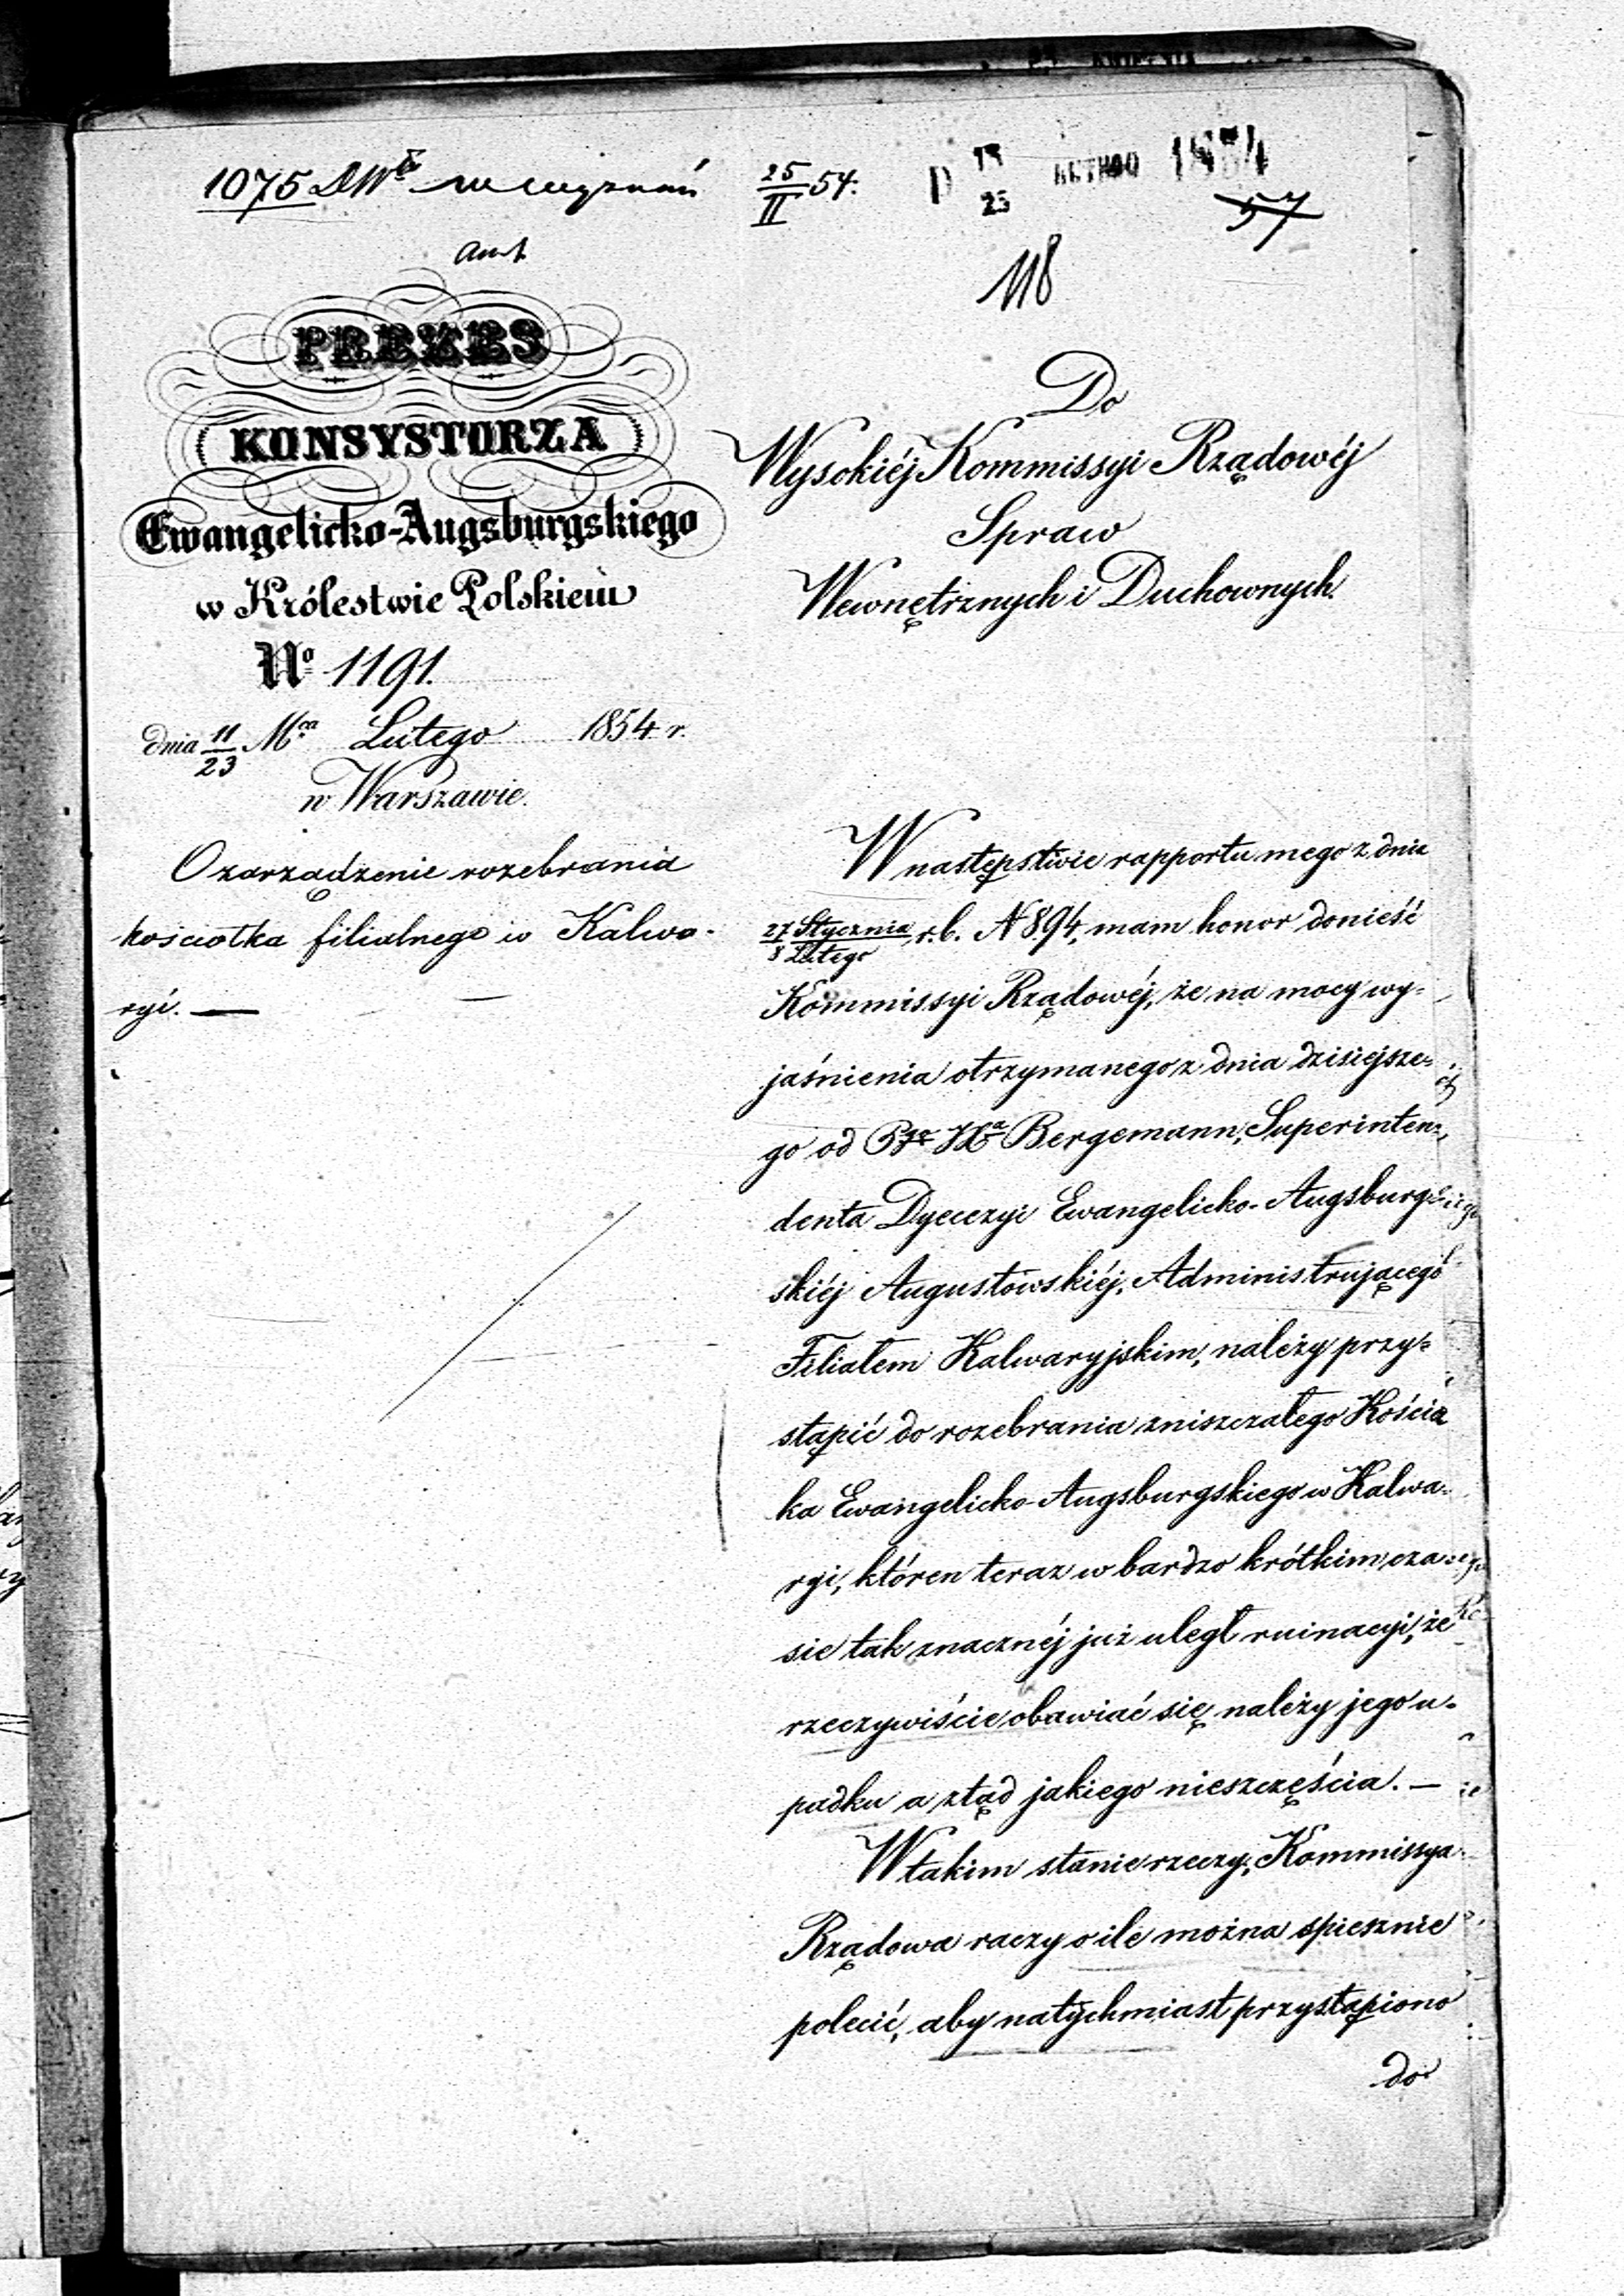 1075
25/II 54.
1854
57
118
PREZES
KONSYSTORZA
Ewangelicko-Augsburgskiego
w Królestwie Polskiem
No 1191.
dnia 11/23 Mca Lutego 1854 r.
w Warszawie.
O zarządzenie rozebrania
kościołka filialnego w Kalwa-
ryi. —
Do
Wysokiéj Kommissyi Rządowéj
Spraw
Wewnętrznych i Duchownych.
W następstwie rapportu mego z dnia
27 Stycznia/8 Lutego r. b. N 894, mam honor donieść
Kommissyi Rządowéj, że na mocy wy-
jaśnienia otrzymanego z dnia dzisiejsze-
go od Bergemann, Superinten-
denta Dyecezyi Ewangelicko-Augsburg-
skiéj Augustowskiéj, Administrującego
Filiałem Kalwaryjskim, należy przy-
stąpić do rozebrania zniszczałego Kościoł
ka Ewangelicko-Augsburgskiego w Kalwa-
ryi, któren teraz w bardzo krótkim cza-
sie tak znacznéj już uległ ruinacyi, że
rzeczywiście obawiać się należy jego u-
padku a ztąd jakiego nieszczęścia. —
W takim stanie rzeczy, Kommissya
Rządowa raczy o ile można spiesznie
polecić, aby natychmiast przystąpiono
do